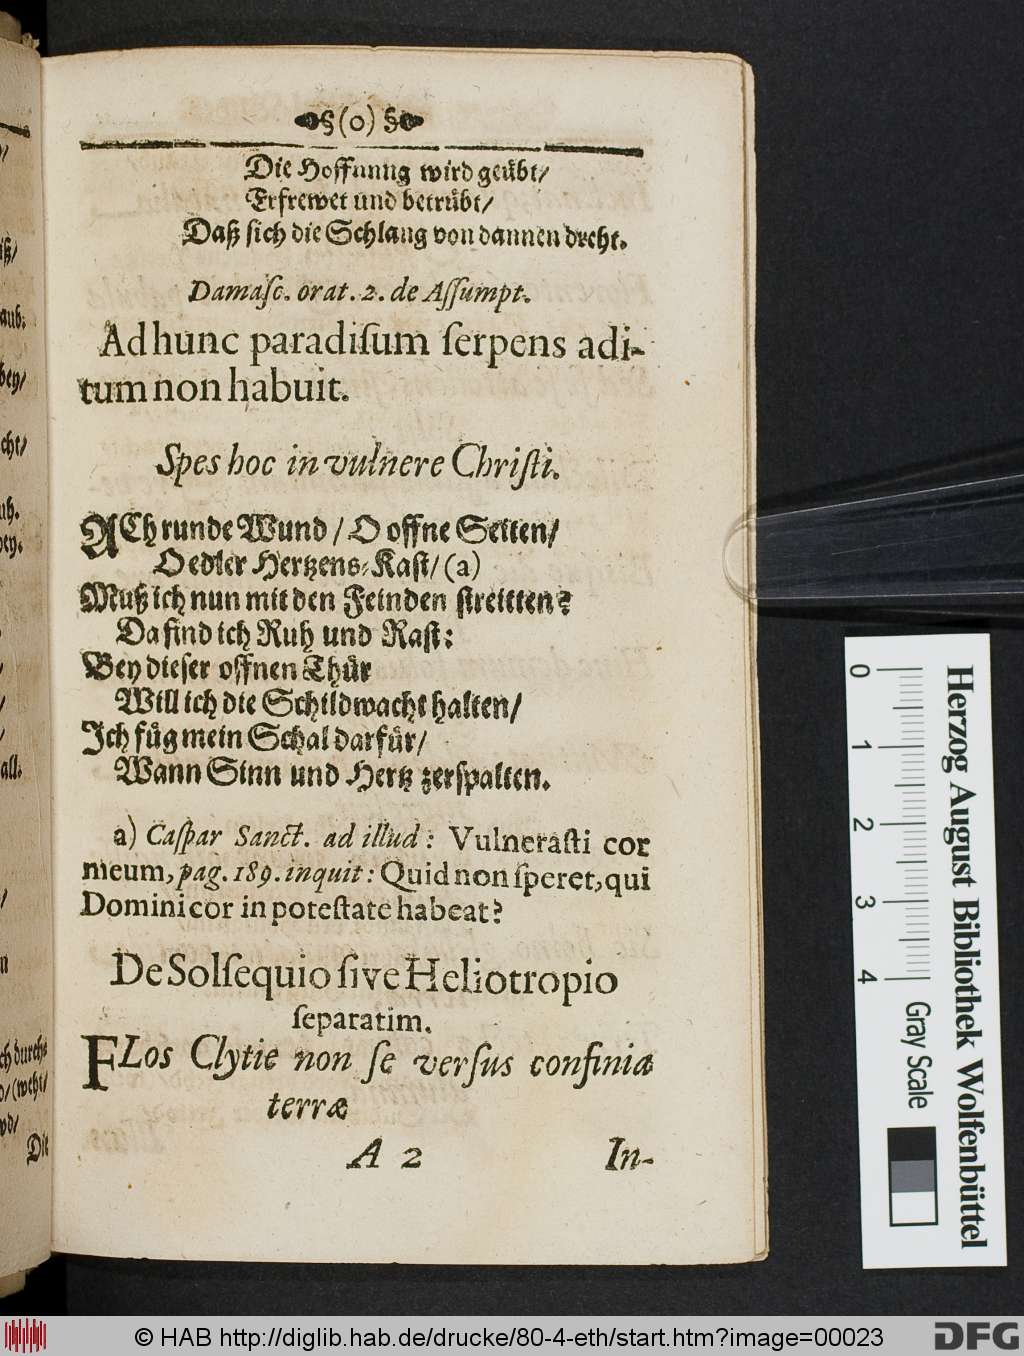 §(o)§
Die Hoffnung wird geübt/
Erfrewet und betrübt/
Daß sich die Schlang von dannen dreht.
Damaſc. orat. 2. de Aſſumpt.
Ad hunc paradiſum ſerpens adi-
tum non habuit.
Spes hoc in vulnere Chriſti.
ACh runde Wund / O offne Seiten/
O edler Hertzens-Kast/ (a)
Muß ich nun mit den Feinden streitten?
Da find ich Ruh und Rast:
Bey dieser offnen Thür
Will ich die Schildwacht halten/
Ich füg mein Schal darfür/
Wann Sinn und Hertz zerspalten.
a) Caſpar Sanct. ad illud: Vulneraſti cor
meum, pag. 189. inquit: Quid non ſperet, qui
Domini cor in poteſtate habeat?
De Solſequio ſive Heliotropio
ſeparatim.
FLos Clytie non ſe verſus confiniæ
terræ
A 2 In-
iß/
aub.
bey/
cht/
uh.
bey.
all.
ch durchs
/(weht/
Die
0 1 2 3 4
Gray Scale
Herzog August Bibliothek Wolfenbüttel
© HAB http://diglib.hab.de/drucke/80-4-eth/start.htm?image=00023
DFG